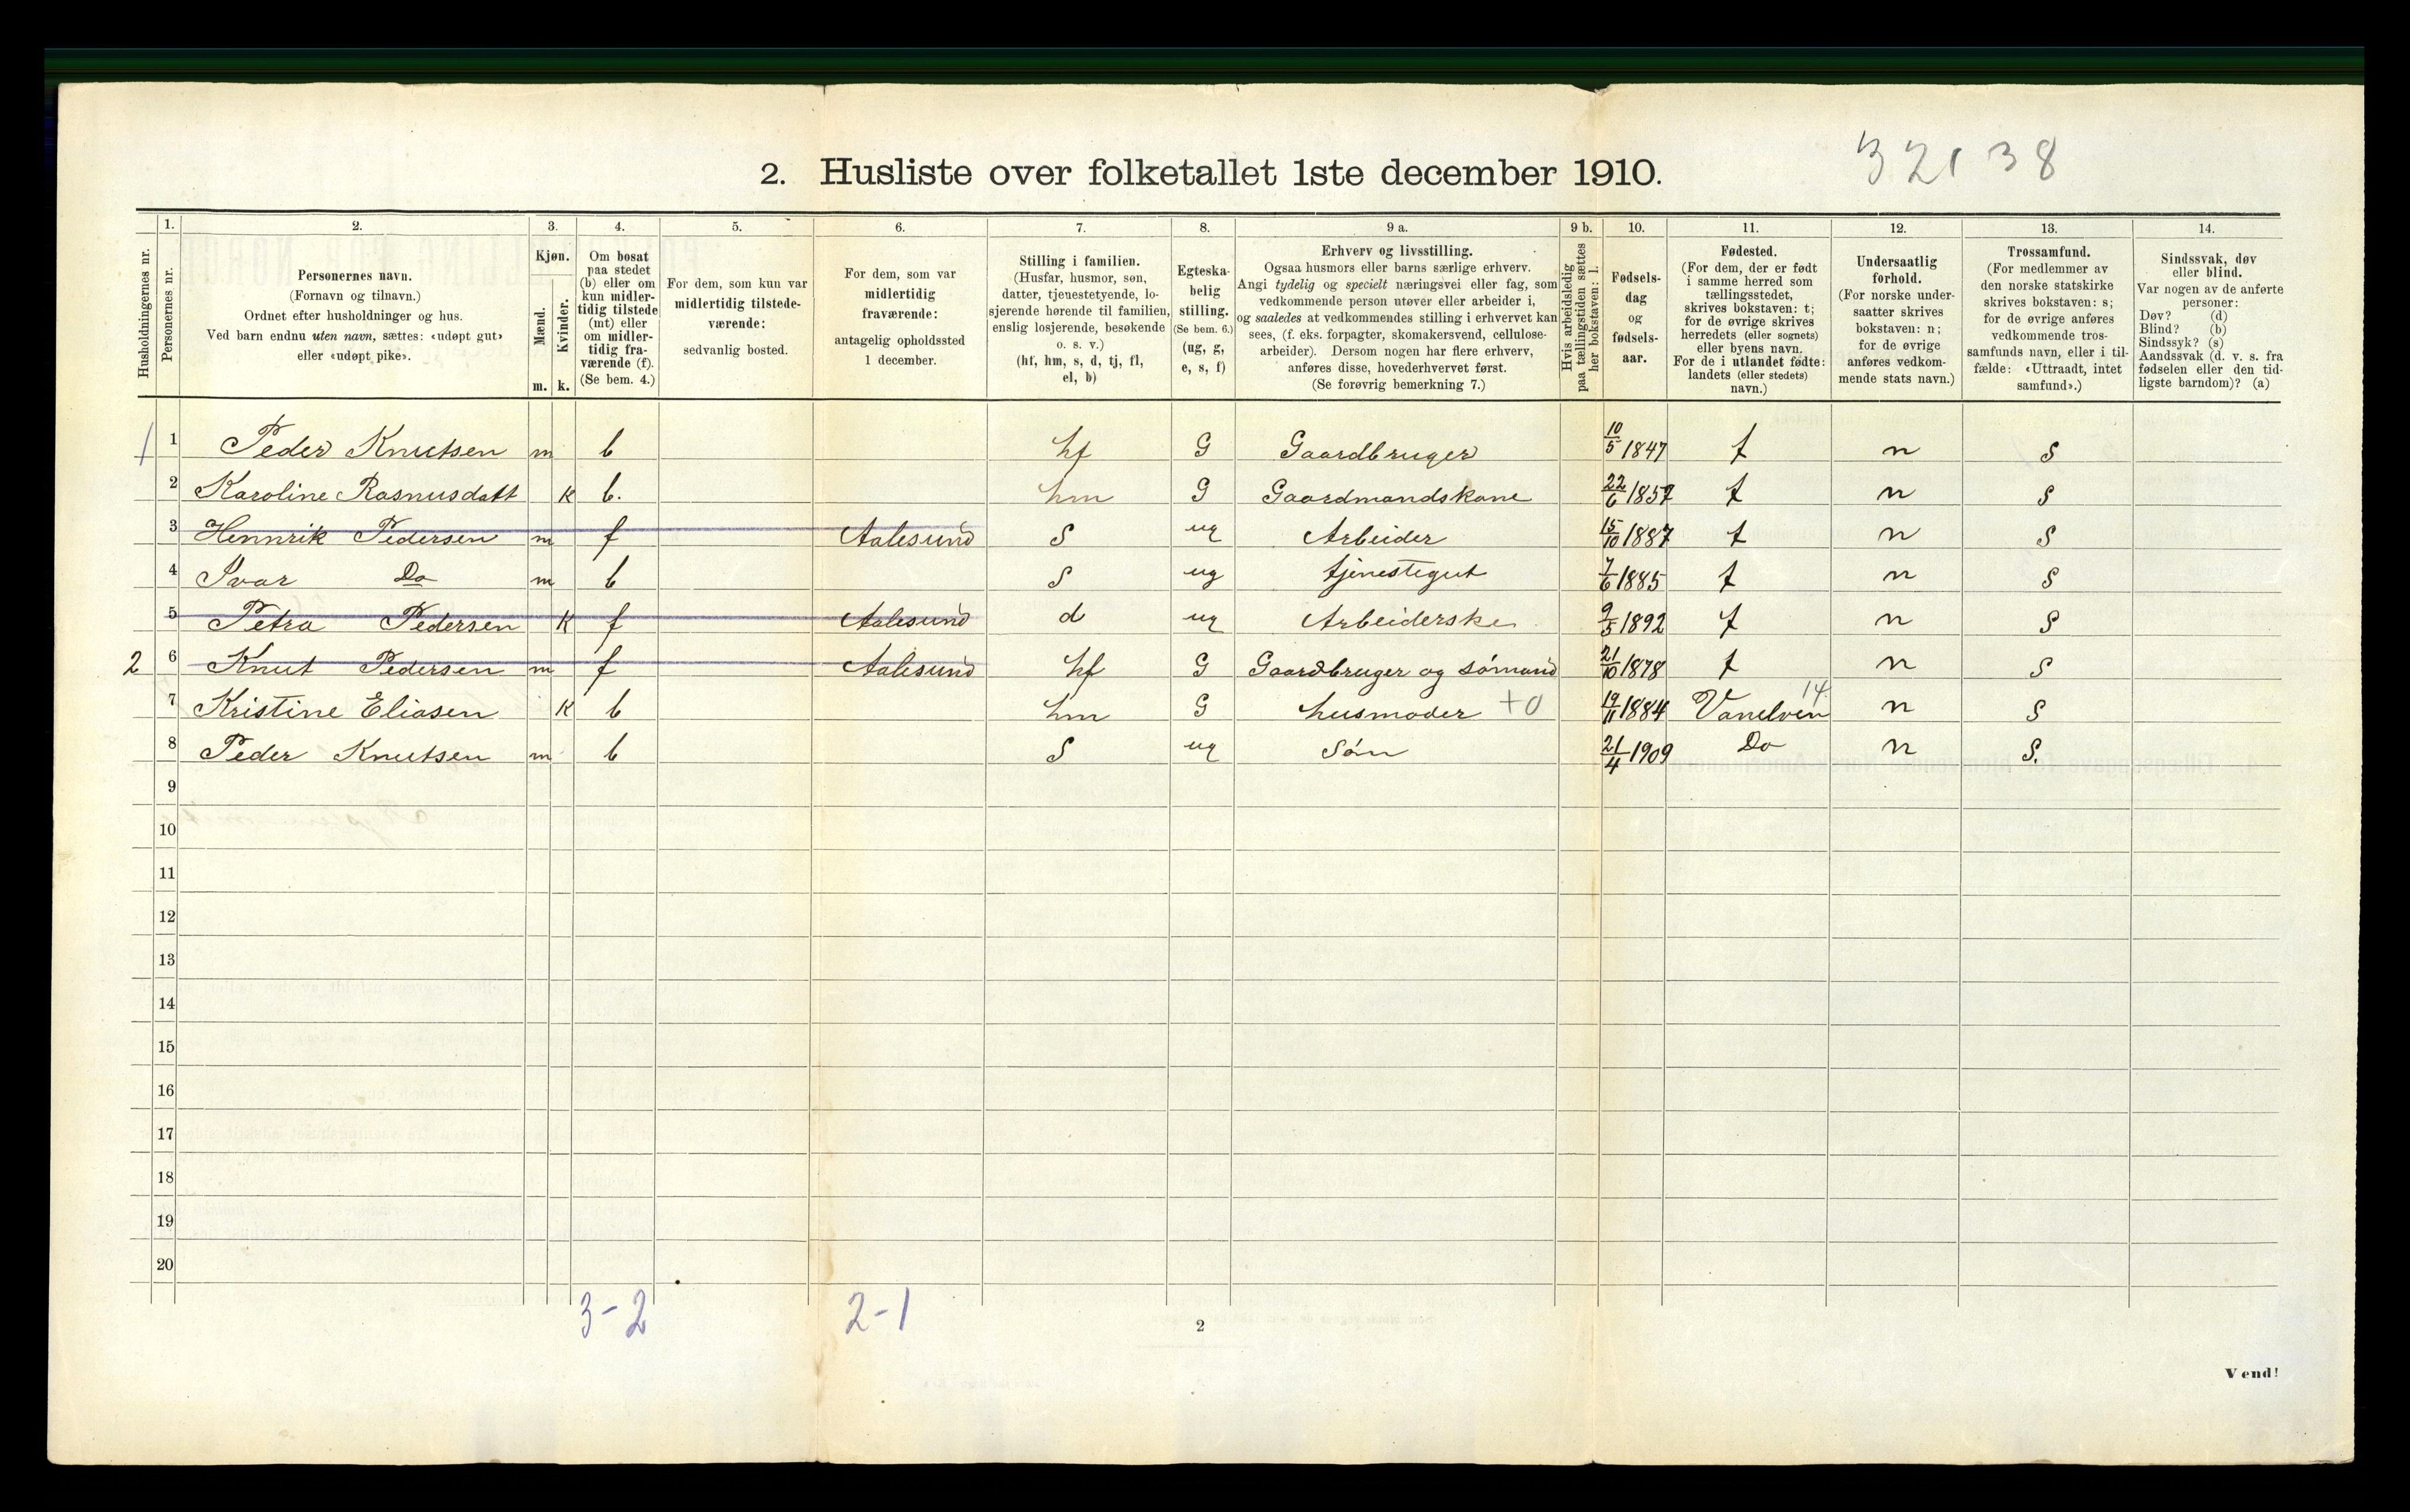 32138
2. Husliste over folketallet 1ste december 1910.
Husholdningernes nr.
1.
Personernes nr.
2.
Personernes navn.
(Fornavn og tilnavn.)
Ordnet efter husholdninger og hus.
Ved barn endnu uten navn, sættes: «udøpt gut»
eller «udøpt pike».
3.
Kjøn.
Mænd.
Kvinder.
m. k.
4.
Om bosat
paa stedet
(b) eller om
kun midler-
tidig tilstede
(mt) eller
om midler-
tidig fra-
værende (f).
(Se bem. 4.)
5.
For dem, som kun var
midlertidig tilstede-
værende:
sedvanlig bosted.
6.
For dem, som var
midlertidig
fraværende:
antagelig opholdssted
1 december.
7.
Stilling i familien.
(Husfar, husmor, søn,
datter, tjenestetyende, lo-
sjerende hørende til familien,
enslig losjerende, besøkende
o. s. v.)
(hf, hm, s, d, tj, fl,
el, b)
8.
Egteska-
belig
stilling.
(Se bem. 6.)
(ug, g,
e, s, f)
9 a.
Erhverv og livsstilling.
Ogsaa husmors eller barns særlige erhverv.
Angi tydelig og specielt næringsvei eller fag, som
vedkommende person utøver eller arbeider i,
og saaledes at vedkommendes stilling i erhvervet kan
sees, (f. eks. forpagter, skomakersvend, cellulose-
arbeider). Dersom nogen har flere erhverv,
anføres disse, hovederhvervet først.
(Se forøvrig bemerkning 7.)
9 b.
Hvis arbeidsledig
paa tællingstiden sættes
her bokstaven: l.
10.
Fødsels-
dag
og
fødsels-
aar.
11.
Fødested.
(For dem, der er født
i samme herred som
tællingsstedet,
skrives bokstaven: t;
for de øvrige skrives
herredets (eller sognets)
eller byens navn.
For de i utlandet fødte:
landets (eller stedets)
navn.)
12.
Undersaatlig
forhold.
(For norske under-
saatter skrives
bokstaven: n;
for de øvrige
anføres vedkom-
mende stats navn.)
13.
Trossamfund.
(For medlemmer av
den norske statskirke
skrives bokstaven: s;
for de øvrige anføres
vedkommende tros-
samfunds navn, eller i til-
fælde: «Uttraadt, intet
samfund».)
14.
Sindssvak, døv
eller blind.
Var nogen av de anførte
personer:
Døv? (d)
Blind? (b)
Sindssyk? (s)
Aandssvak (d. v. s. fra
fødselen eller den tid-
ligste barndom)? (a)
1 1 Peder Knutsen m b hf G Gaardbruger 10/5 1847 t n S
2 Karoline Rasmusdatt K b. hm G Gaardmandskone 22/6 1857 t n S
3 Hennrik Pedersen m f Aalesund S ug Arbeider 15/10 1887 t n S
4 Ivar Do m b S ug tjenestegut 7/6 1885 t n S
5 Petra Pedersen K f Aalesund d ug Arbeiderske 9/5 1892 t n S
2 6 Knut Pedersen m f Aalesund hf G Gaardbruger og sömand 21/10 1878 t n S
7 Kristine Eliasen K b hm G husmoder +0 19/11 1884 Vanelven 14 n S
8 Peder Knutsen m b S ug Sön 21/4 1909 Do n S.
9
10
11
12
13
14
15
16
17
18
19
20
3-2 2-1
2
Vend!